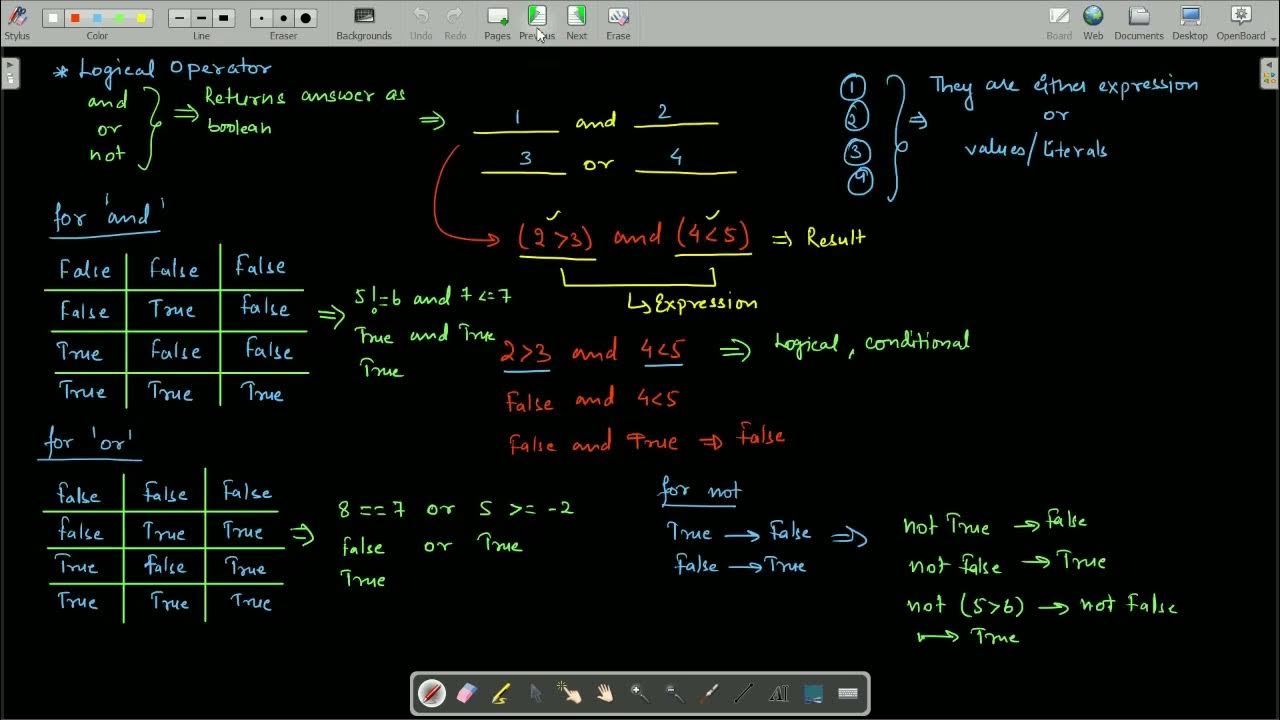 Stylus Color Line Eraser Backgrounds Undo Redo Pages Previous Next Erase Board Web Documents Desktop OpenBoard
* Logical Operator
and
or
not
⇒ Returns answer as
boolean
⇒ 1 and 2
3 or 4
(2 >3) and (4<5) ⇒ Result
↳ Expression
1
2
3
4
⇒ They are either expression
or
values/literals
for 'and'
False False False
False True False
True False False
True True True
⇒ 5 != 6 and 7 <= 7
True and True
True
2>3 and 4<5 ⇒ Logical, conditional
False and 4<5
False and True ⇒ False
for 'or'
False False False
False True True
True False True
True True True
⇒ 8 == 7 or 5 >= -2
False or True
True
for not
True → False ⇒
False → True
not True → False
not False → True
not (5>6) → not False
↦ True
AI